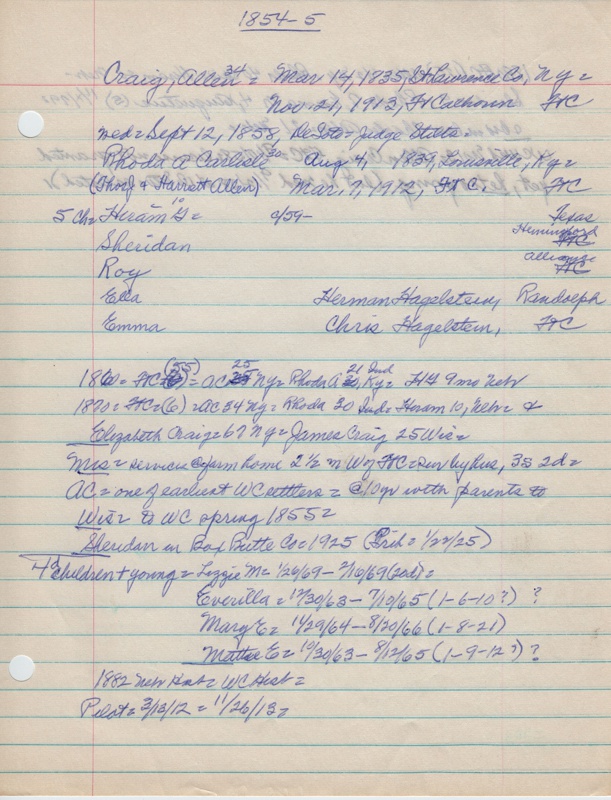 1854-5
Craig, Allen 34 = Mar 14, 1835, St Lawrence Co, Ny =
Nov. 21, 1913, Ft Calhoun FtC
wed = Sept 12, 1858, DeSoto = Judge Stitts =
Rhoda A Carlisle 20 Aug 4, 1839, Louisville, Ky =
(Thos J & Harriett Allen) Mar. 7, 1912, FtC, FtC
5 Ch = Hiram G = 10 c/59- Texas
Sheridan Hemingford FtC
Roy Alliance FtC
Ella Herman Hagelstein, Randolph
Emma Chris Hagelstein, FtC
1860 = FtC (55) = AC 25 Ny = Rhoda A 21 Ind Ky = HG 9 mo Nebr
1870 = FtC = (6) = AC 54 Ny = Rhoda 30 Ind = Hiram 10, Nebr = &
Elizabeth Craig = 67 Ny = James Craig 25 Wis =
Mrs = services @ farm home 2 1/2 m W of FtC = sur by hus, 3s 2d =
AC = one of earliest WC settlers = @ 10 yr with parents to
Wis = to WC spring 1855 =
Sheridan in Box Butte Co = 1925 (1/22/25)
4 children + young = Lizzie M = 1/26/69 - 2/16/69 (20d) =
Everilla = 12/30/63 - 7/10/65 (1-6-10?) ?
Mary E = 11/29/64 - 8/20/66 (1-8-21)
Mattie E = 10/30/63 - 8/12/65 (1-9-12?) ?
1882 Nebr Hist = WC Hist =
Pilot = 3/13/12 = 11/26/13 =